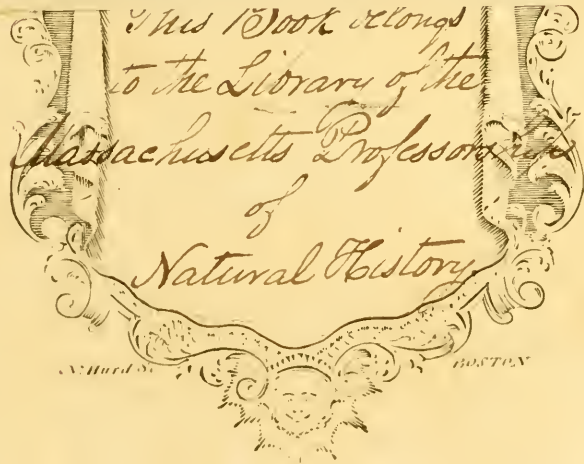 This Book belongs
to the Library of the
Massachusetts Professorship
of
Natural History.
N. Hurd Sc. BOSTON